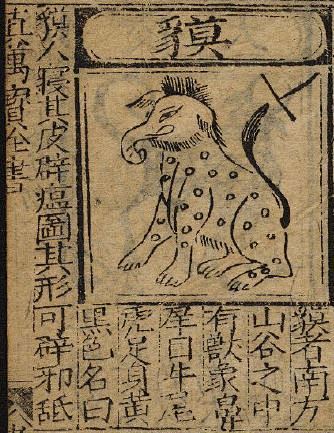 貘
貘者南方
山谷之中
有獸象鼻
犀目牛尾
虎足身黄
黑色名曰
貘人寢其皮辟瘟圖其形可辟邪舐
萬寳全書